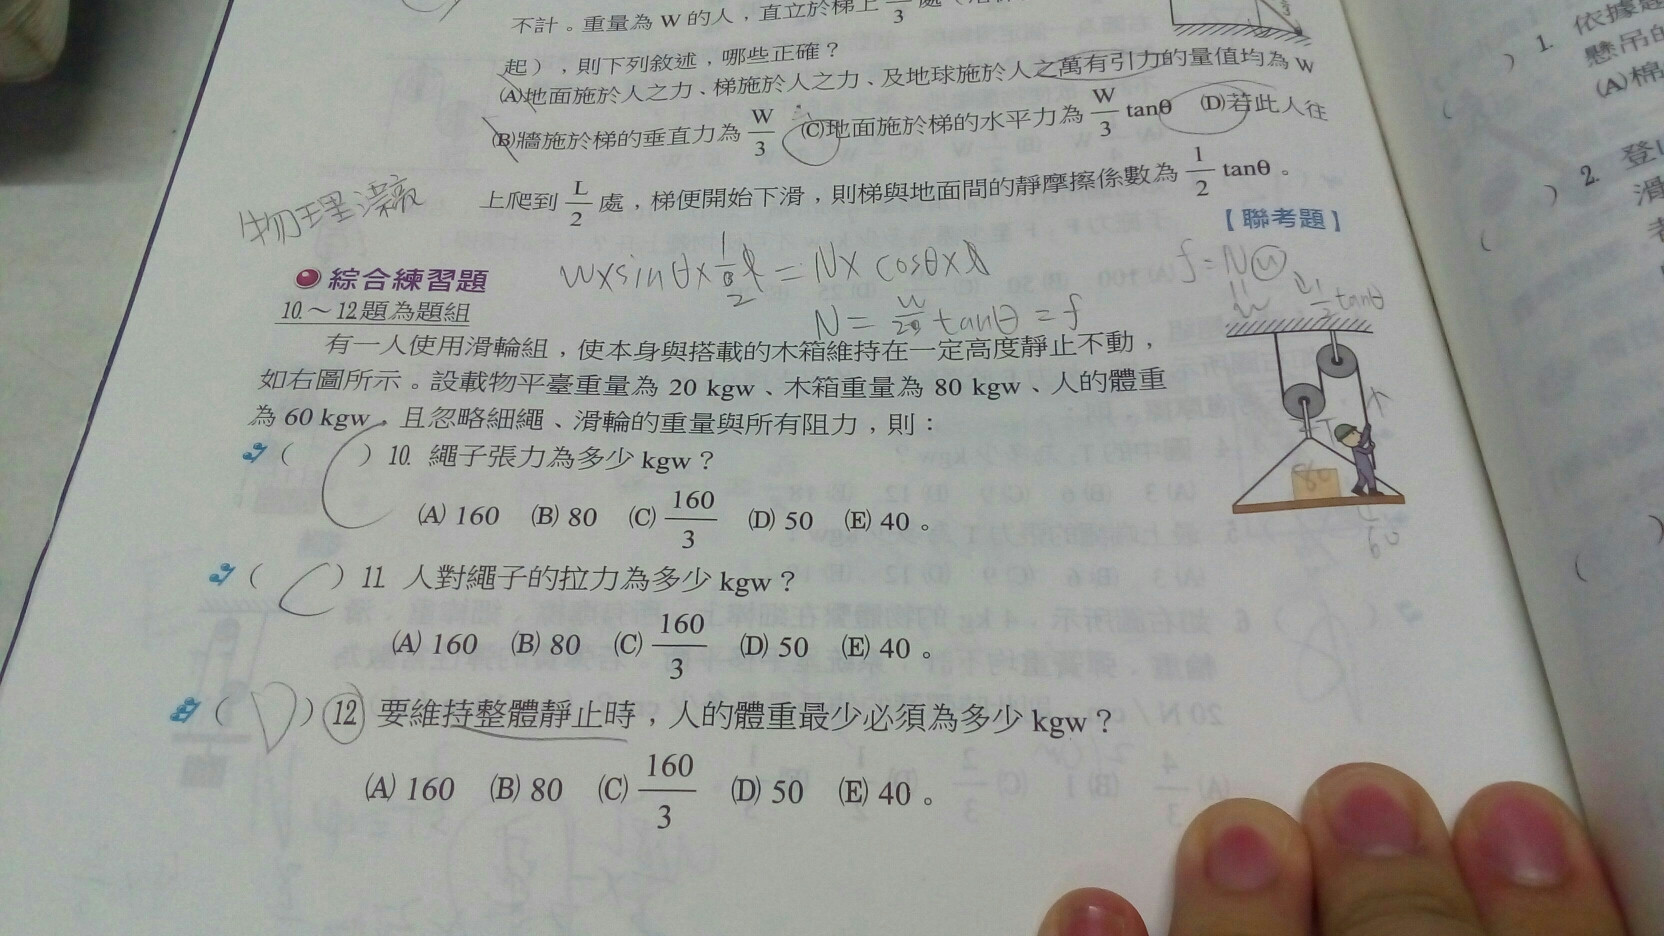 不計。重量為 W 的人，直立於梯上 /3 處
起），則下列敘述，哪些正確？
(A)地面施於人之力、梯施於人之力、及地球施於人之萬有引力的量值均為 W
(B)牆施於梯的垂直力為 W/3 (C)地面施於梯的水平力為 W/3 tanθ (D)若此人往
上爬到 L/2 處，梯便開始下滑，則梯與地面間的靜摩擦係數為 1/2 tanθ。
【聯考題】
綜合練習題
10.～12.題為題組
有一人使用滑輪組，使本身與搭載的木箱維持在一定高度靜止不動，
如右圖所示。設載物平臺重量為 20 kgw、木箱重量為 80 kgw、人的體重
為 60 kgw，且忽略細繩、滑輪的重量與所有阻力，則：
( C ) 10. 繩子張力為多少 kgw？
(A) 160 (B) 80 (C) 160/3 (D) 50 (E) 40。
( C ) 11. 人對繩子的拉力為多少 kgw？
(A) 160 (B) 80 (C) 160/3 (D) 50 (E) 40。
( D ) 12. 要維持整體靜止時，人的體重最少必須為多少 kgw？
(A) 160 (B) 80 (C) 160/3 (D) 50 (E) 40。
物理
N = W/2 tanθ = f
80
60
1. 依據
懸吊的
(A)棉
2. 登山
滑